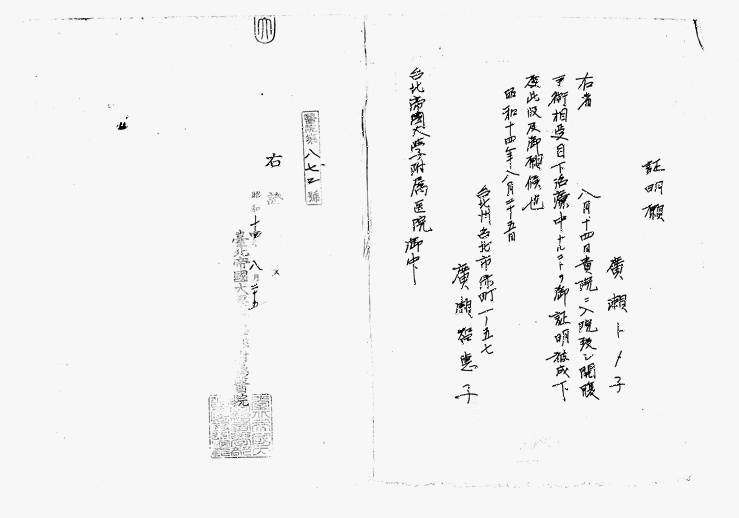 証明願
廣瀬トメ子
右者 八月十四日貴院ニ入院致シ開腹
手術相受目下治療中ナルコトヲ御証明被成下
度此段及御願候也
昭和十四年八月二十五日
台北州台北市 町一ノ五七
廣瀬 惠子
台北帝国大学附属医院御中
醫院第八七二號
右 證 ス
昭和十四年八月二十五
臺北帝國大 附屬醫院